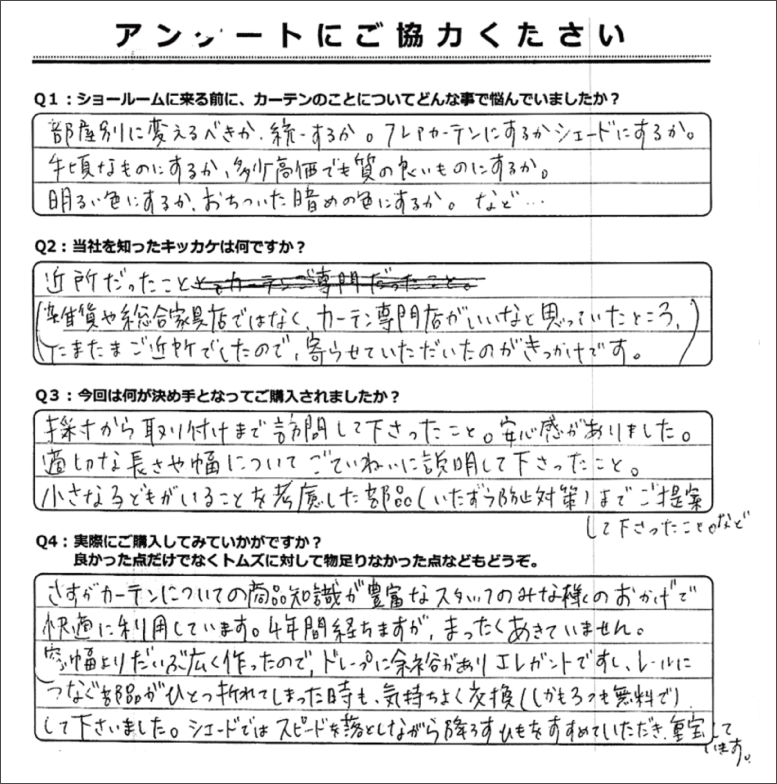 アンケートにご協力ください
Q1：ショールームに来る前に、カーテンのことについてどんな事で悩んでいましたか？
部屋別に変えるべきか、統一するか。フレアカーテンにするかシェードにするか。
手頃なものにするか、多少高価でも質の良いものにするか。
明るい色にするか、おちついた暗めの色にするか。など…
Q2：当社を知ったキッカケは何ですか？
近所だったことと、カーテンご専門だったこと。
(雑貨や総合家具店ではなく、カーテン専門店がいいなと思っていたところ、
たまたまご近所でしたので、寄らせていただいたのがきっかけです。)
Q3：今回は何が決め手となってご購入されましたか？
採寸から取り付けまで訪問して下さったこと。安心感がありました。
適切な長さや幅についてごていねいに説明して下さったこと。
小さな子どもがいることを考慮した部品(いたずら防止対策)までご提案
して下さったこと。など
Q4：実際にご購入してみていかがですか？
良かった点だけでなくトムズに対して物足りなかった点などもどうぞ。
さすがカーテンについての商品知識が豊富なスタッフのみな様のおかげで
快適に利用しています。4年間経ちますが、まったくあきていません。
窓幅よりだいぶ広く作ったので、ドレープに余裕がありエレガントですし、レールに
つなぐ部品がひとつ折れてしまった時も、気持ちよく交換(しかも 無料で)
して下さいました。シェードではスピードを落としながら降ろすひもをすすめていただき、重宝して
います。